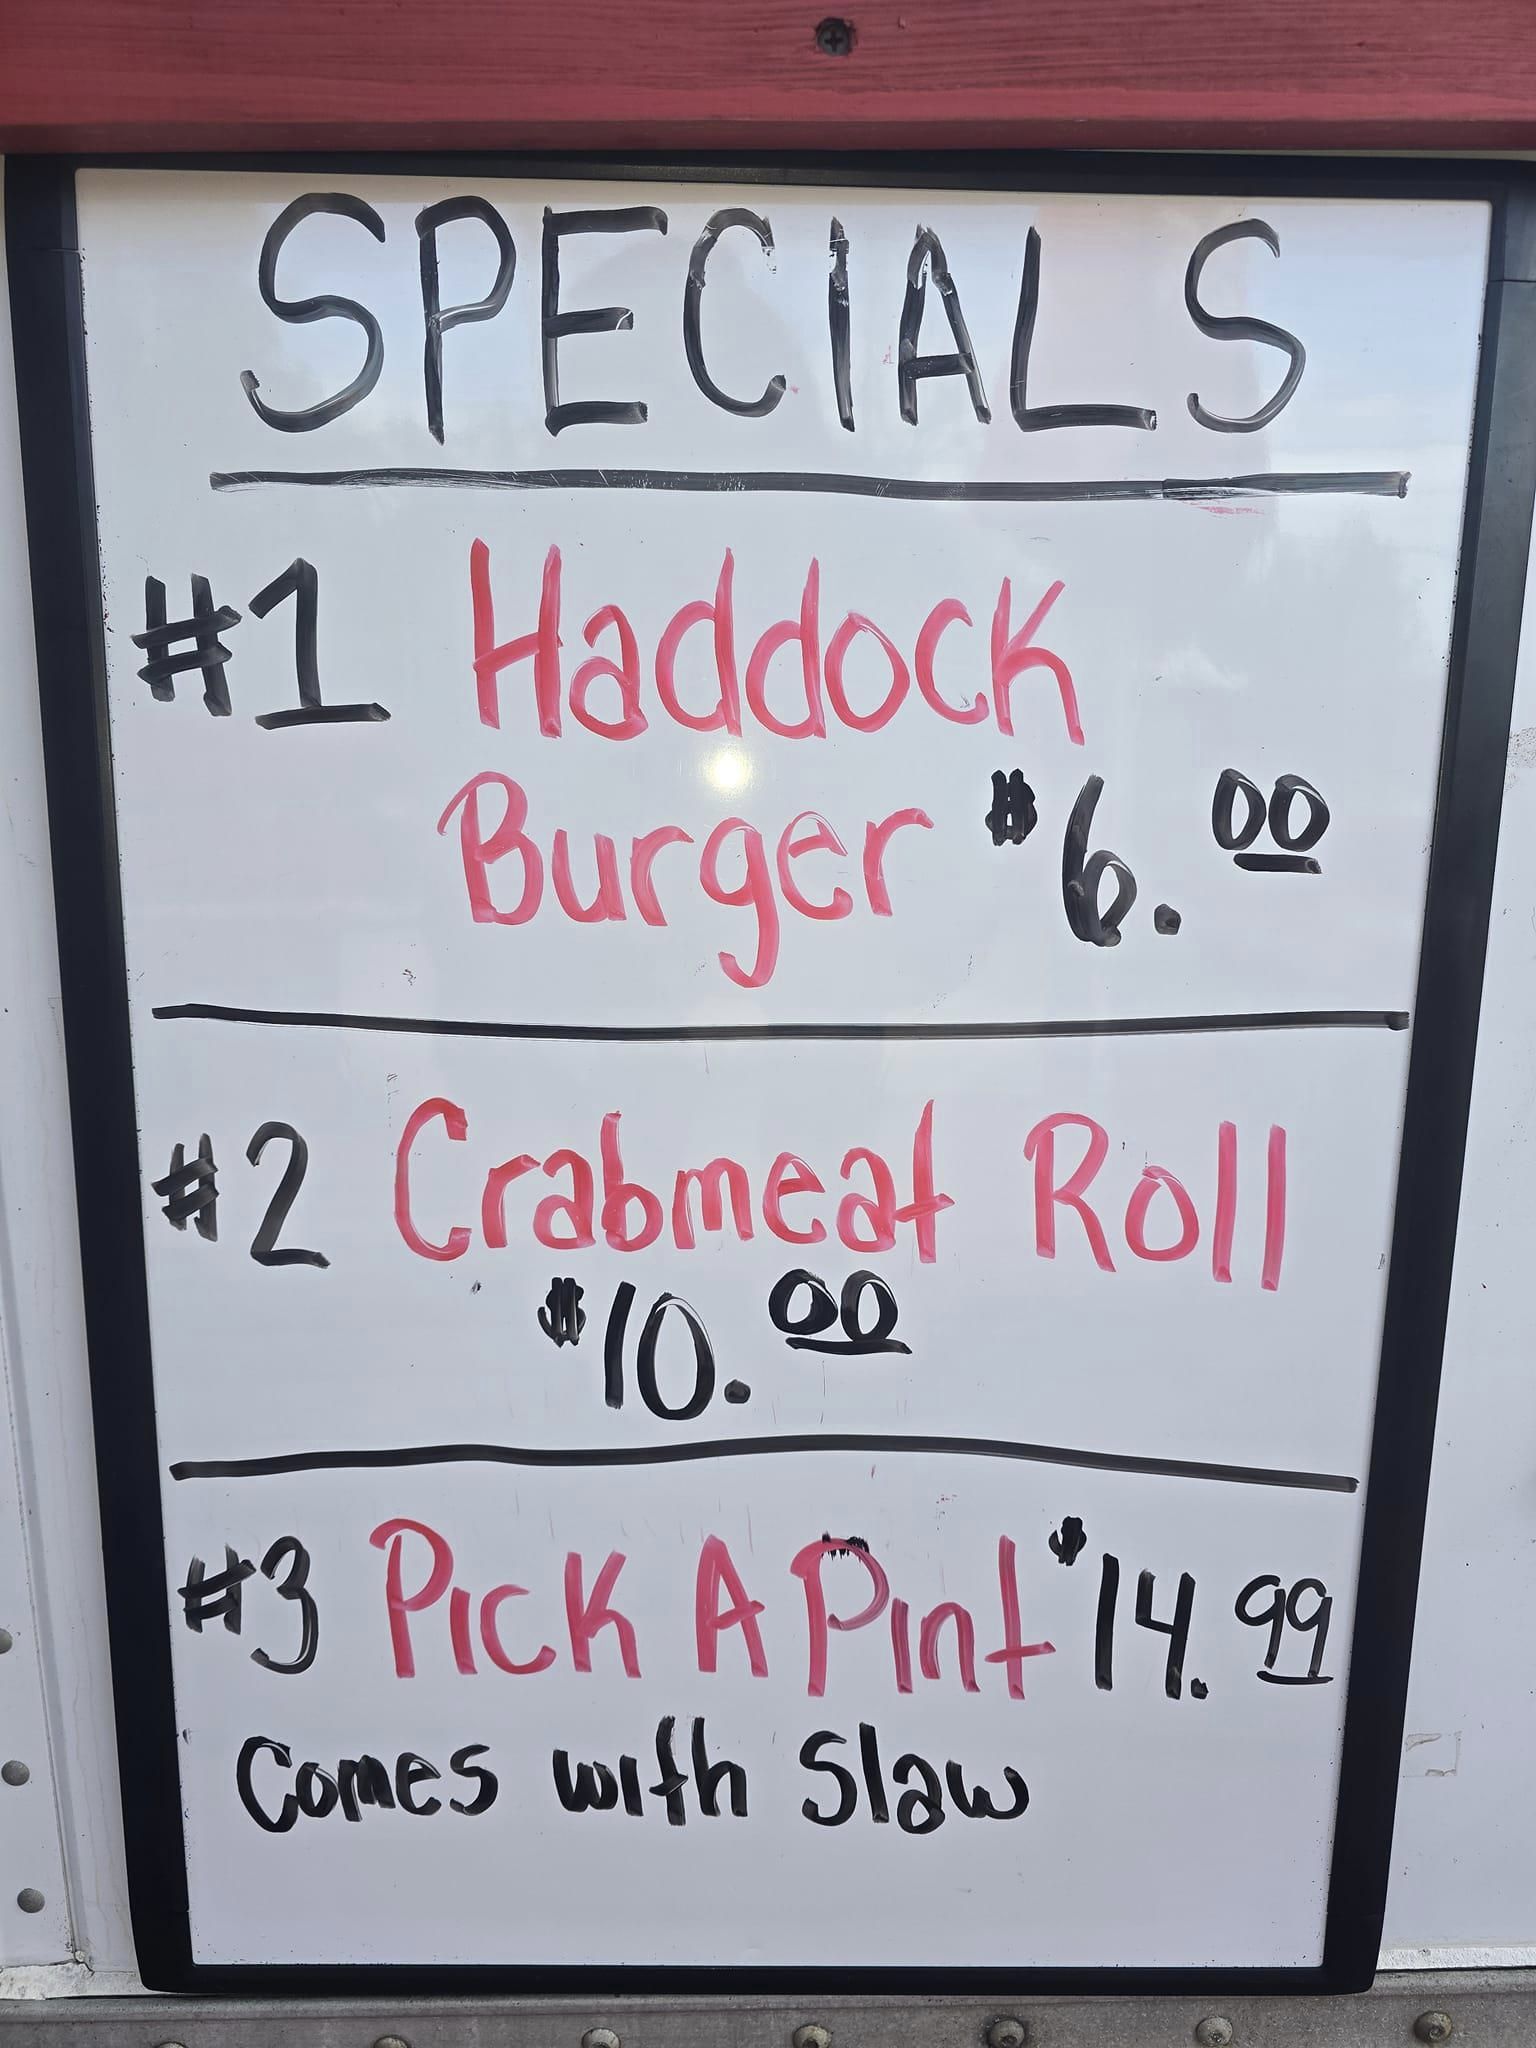 SPECIALS
#1 Haddock
Burger $6.00
#2 Crabmeat Roll
$10.00
#3 Pick A Pint $14.99
Comes with Slaw